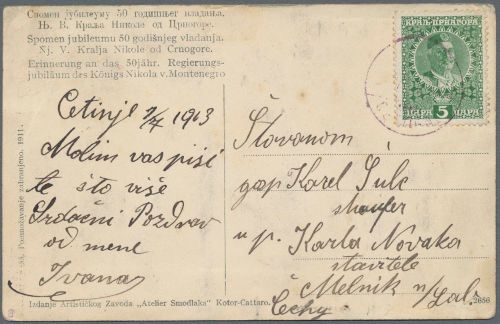 Спомен јубилеуму 50 годишњег владања
Њ. В. Краља Николе од Црногоре.
Spomen jubileumu 50 godišnjeg vladanja
Nj. V. Kralja Nikole od Crnogore.
Erinnerung an das 50jähr. Regierungs-
jubiläum des Königs Nikola v. Montenegro
КРАЉ. ЦРНАГОРА
ПАРА 5 ПАРА
Cetinje 1913
Molim vas piši
te što više
Srdačni Pozdrav
od mene
Ivana
Štovanom
gosp Karel Šulc
u p. Karla Novaka
stavitele
Melnik n/Lab.
Čechy
Pozmnožavanje zabranjeno. 1911.
Izdanje Artističkog Zavoda „Atelier Smodlaka" Kotor-Cattaro.
2656